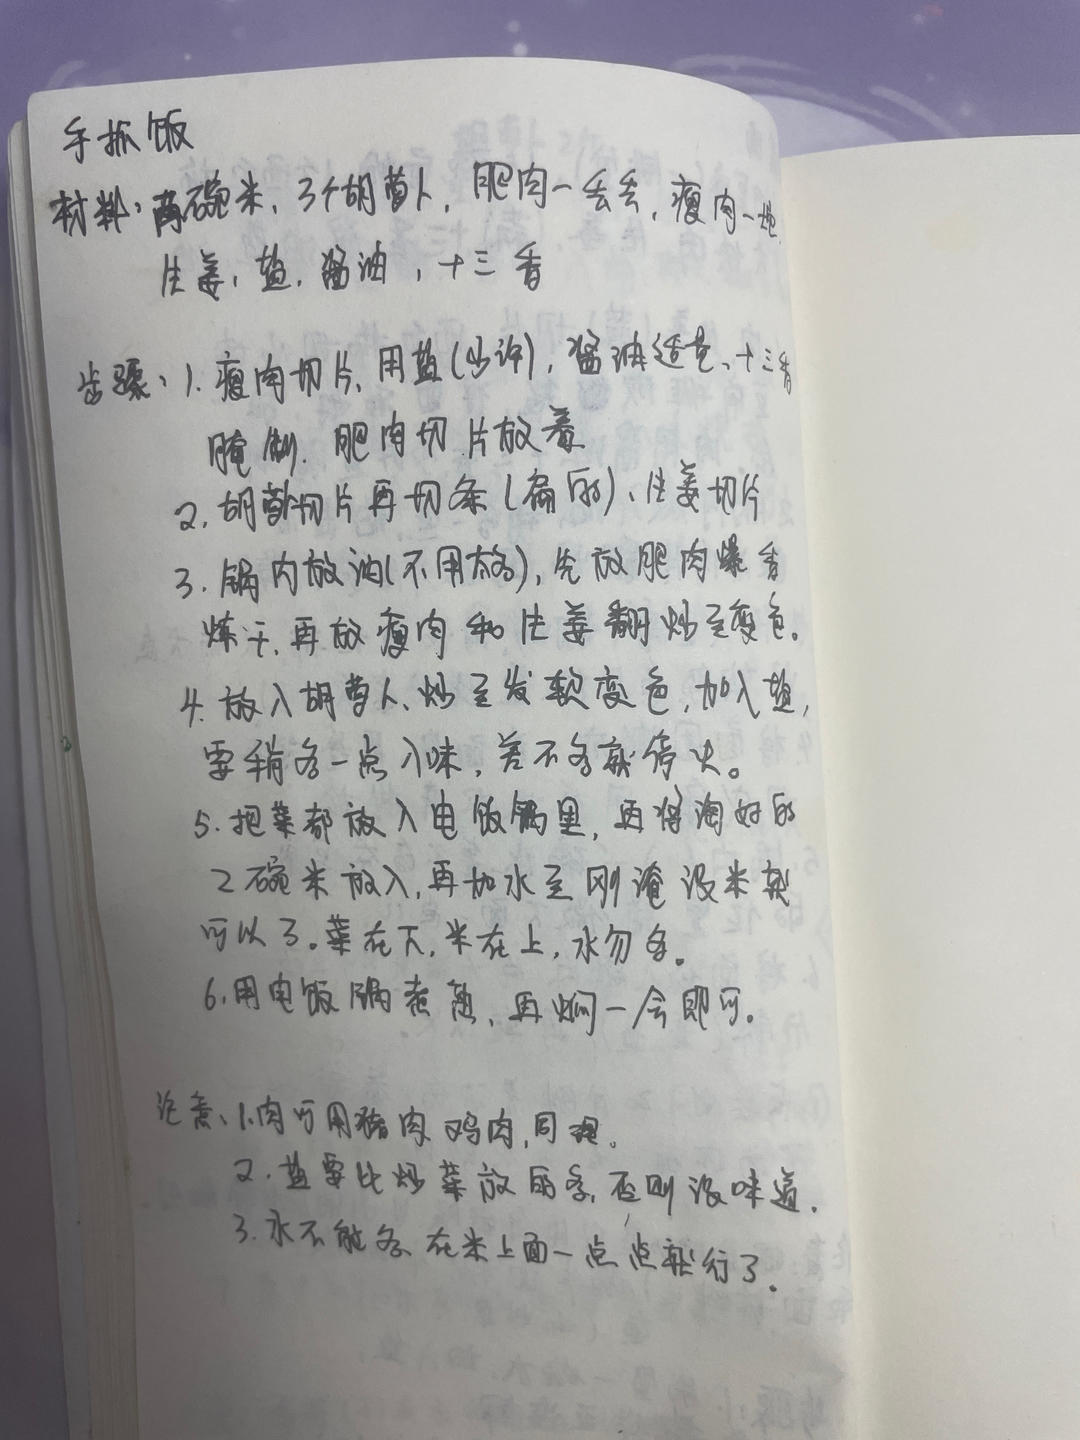 手抓饭
材料:两碗米、3个胡萝卜,肥肉一丢丢,瘦肉一块
生姜,盐,酱油,十三香
步骤:1.瘦肉切片,用盐(少许),酱油适量、十三香
腌制.肥肉切片放着
2.胡萝卜切片再切条(扁的)、生姜切片
3.锅内放油(不用太多),先放肥肉爆香
炼干,再放瘦肉和生姜翻炒至变色。
4.放入胡萝卜、炒至发软变色,加入盐,
要稍多一点入味,差不多就停火。
5.把菜都放入电饭锅里,再将淘好的
2碗米放入,再加水至刚淹没米就
可以了。菜在下,米在上,水勿多。
6.用电饭锅煮熟,再焖一会即可。
注意、1.肉可用猪肉、鸡肉,同理。
2.盐要比炒菜放的多,否则没味道.
3.水不能多、在米上面一点点就行了.